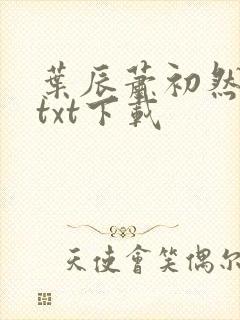 葉辰蕭初然
txt下載
天使會笑偶尔